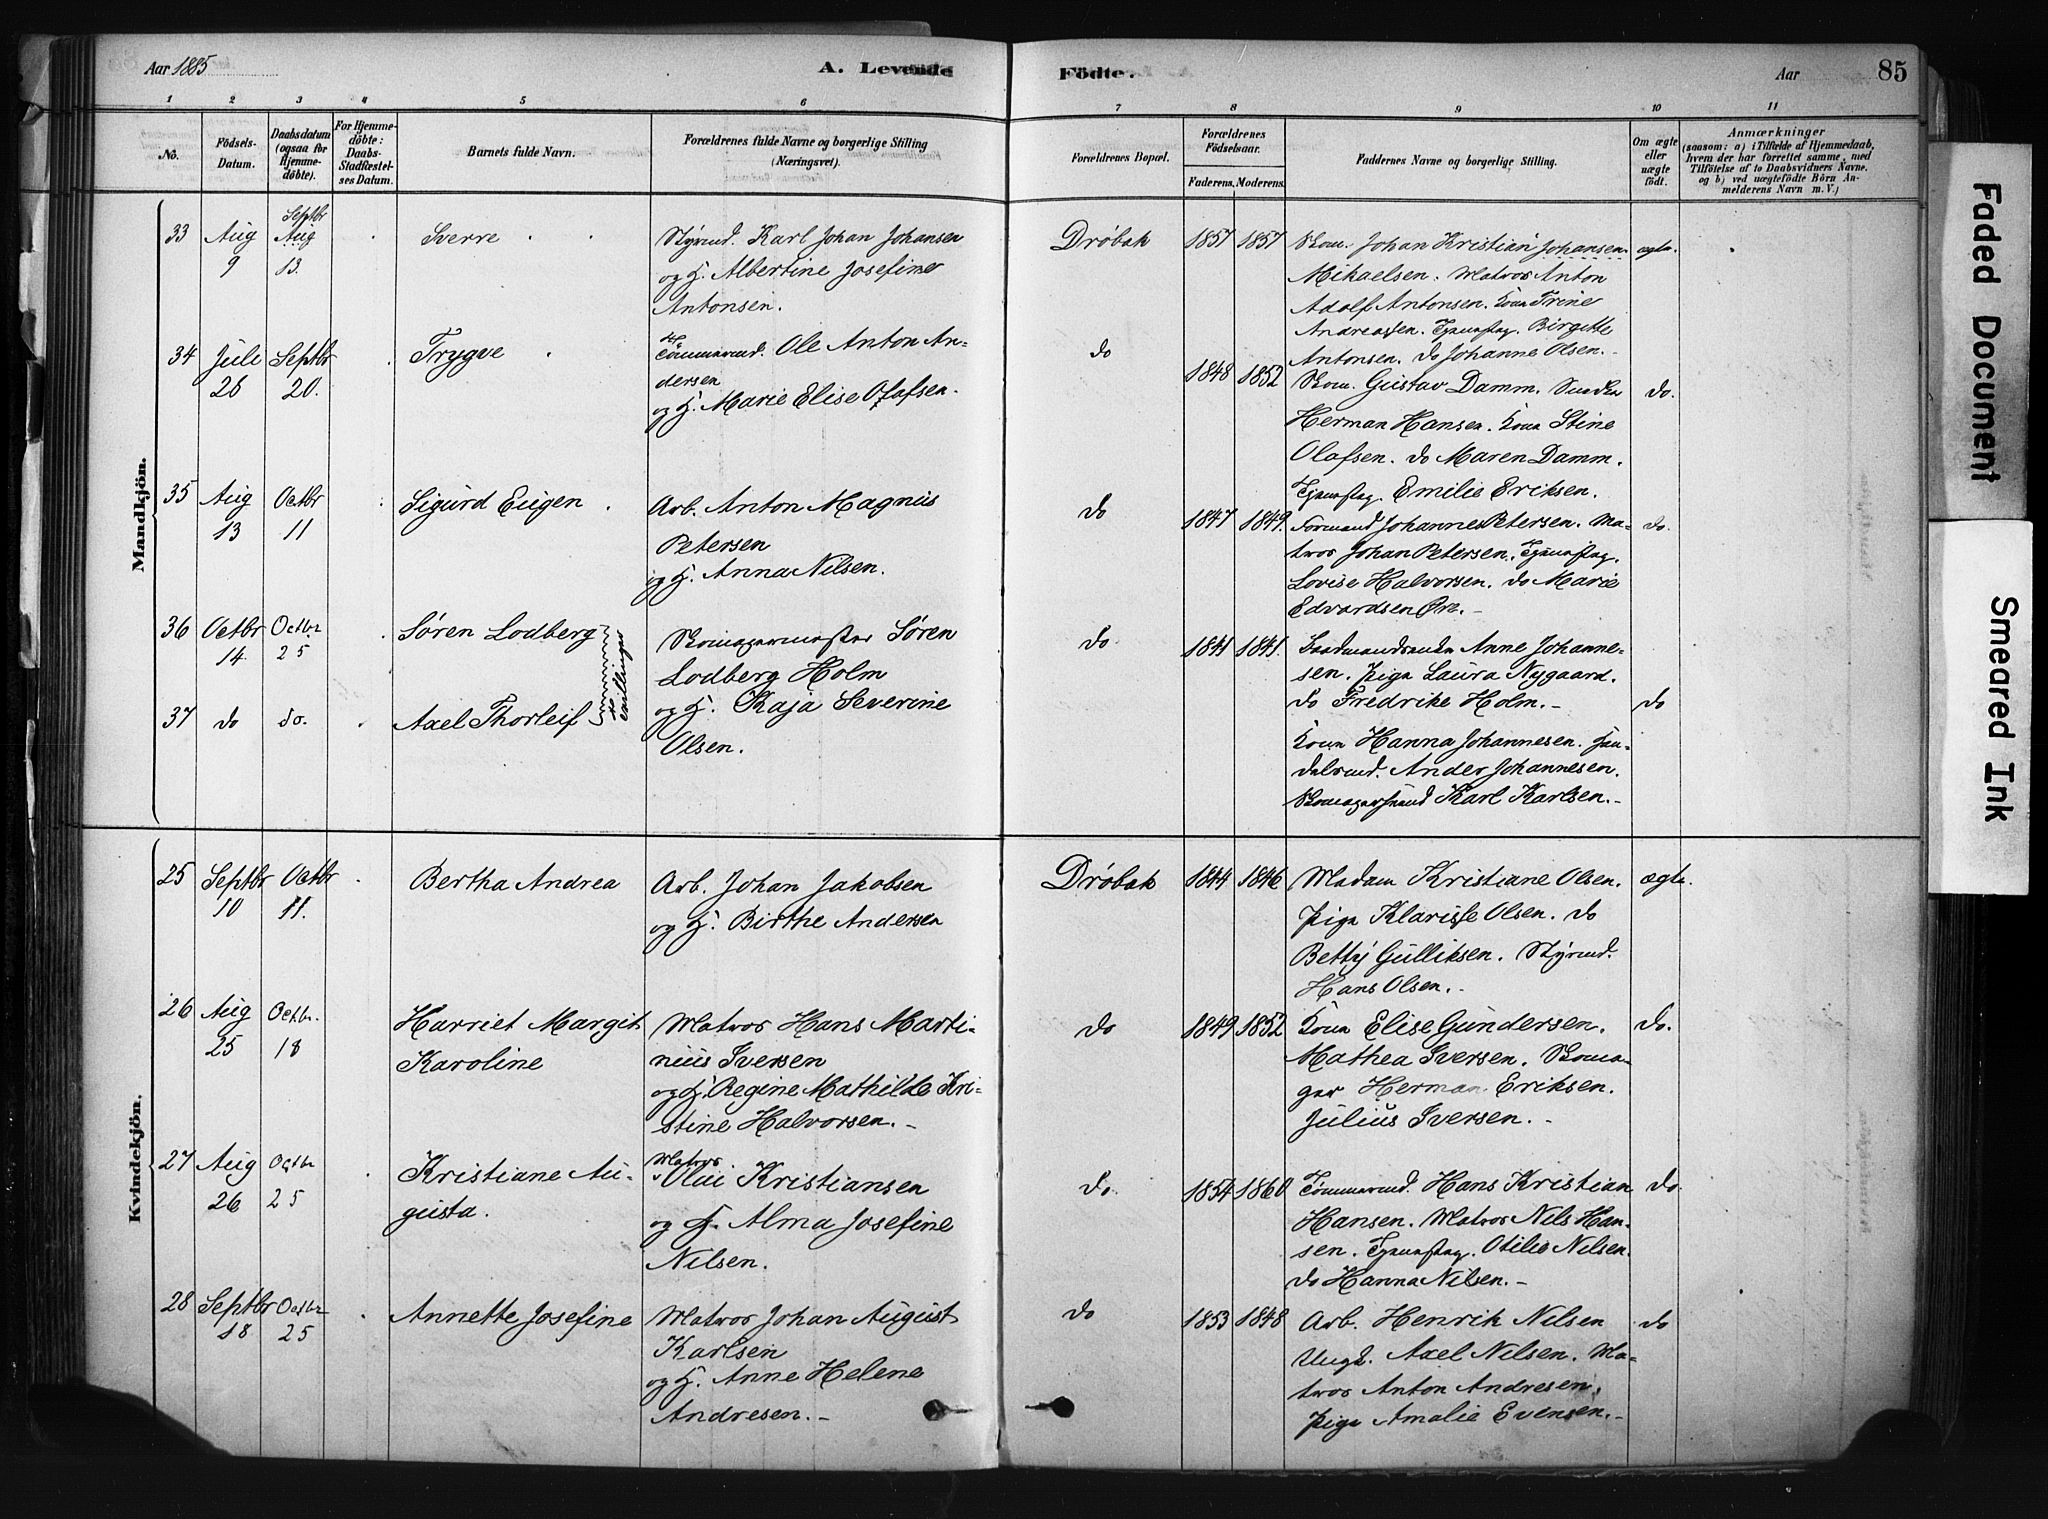 Aar 1885
A. Levende
Födte.
Aar
85
1 2 3 4 5 6 7 8 9 10 11
No.
Födsels-Datum.
Daabsdatum (ogsaa for Hjemmedöbte).
For Hjemmedöbte: Daabs-Stadfæstelses Datum.
Barnets fulde Navn.
Forældrenes fulde Navne og borgerlige Stilling (Næringsvei).
Forældrenes Bopæl.
Forældrenes Födselsaar.
Faderens. Moderens.
Faddernes Navne og borgerlige Stilling.
Om ægte eller uægte födt.
Anmærkninger
(saasom: a) i Tilfælde af Hjemmedaab, hvem der har forrettet samme, med Tilföielse af to Daabsvidners Navne, og b) ved uægtefödte Börn Anmelderens Navn m. V.)
Mandkjön.
33 Aug 9 Septbr Aug 13. Sverre
Styrmd. Karl Johan Johansen
og H. Albertine Josefine
Antonsen.
Drøbak 1857 1857
Johan Kristian Johansen
Mikaelsen. Matros Anton
Adolf Antonsen. Kone Trine
Andreassen. Tjenestpg. Birgitte
Antonsen. do Johanne Olsen.
ægte.
34 Juli 26 Septbr 20. Trygve
Tømmermd. Ole Anton An-
dersen
og H. Marie Elise Olafsen.
do 1848 1852
Gustav Damm.
Herman Hansen. Kone Stine
Olafsen. do Maren Damm.
Tjenestpg. Emilie Eriksen.
do.
35 Aug 13 Octbr 11 Sigurd Eugen
Arb. Anton Magnus
Petersen
og H. Anna Nilsen.
do 1847 1849.
Formand Johannes Petersen. Ma-
tros Johan Petersen. Tjenestpg.
Lovise Halvorsen. do Marie
Edvardsen
do.
36 Octbr 14. Octbr 25 Søren Lodberg
tvillinger
Skomagermester Søren
Lodberg Holm
og H. Kaja Severine
Olsen.
do. 1841 1841.
Anne Johanne-
sen. Pige Laura Nygaard.
do Fredrikke Holm.
37 do do. Axel Thorleif
do
Kone Hanna Johannesen. Han-
delsmd. Ander Johannesen.
Skomagersvend Karl Karlsen.
Kvindekjön.
25 Septbr 10 Octbr 11. Bertha Andrea
Arb. Johan Jakobsen
og H. Birthe Andersen
Drøbak 1844 1846
Madam Kristiane Olsen.
Pige Klarisse Olsen. do
Betty Gulliksen. Styrmd.
Hans Olsen.
ægte.
26 Aug 25 Octbr. 18 Harriet Margit
Karoline
Matros Hans Marti-
nius Iversen
og H. Regine Mathilde Kri-
stine Halvorsen.
do 1849 1852
Kone Elise Gundersen.
Mathea Iversen. Skoma-
ger Herman Eriksen.
Julius Iversen.
do.
27 Aug 26 Octbr 25 Kristiane Au-
gusta.
Matros
Olai Kristiansen
og H. Alma Josefine
Nilsen.
do. 1854 1860
Tømmermd. Hans Kristian
Hansen. Matros Nils Han-
sen. Tjenestpg. Otilie Nilsen.
do Hanna Nilsen.
do.
28 Septbr 18 Octbr 25 Annette Josefine
Matros Johan August
Karlsen
og H. Anne Helene
Andresen.
do 1853 1848
Arb. Henrik Nilsen
Ungk. Axel Nilsen. Ma-
tros Anton Andresen.
Pige Amalie Evensen.
do
Faded Document
Smeared Ink